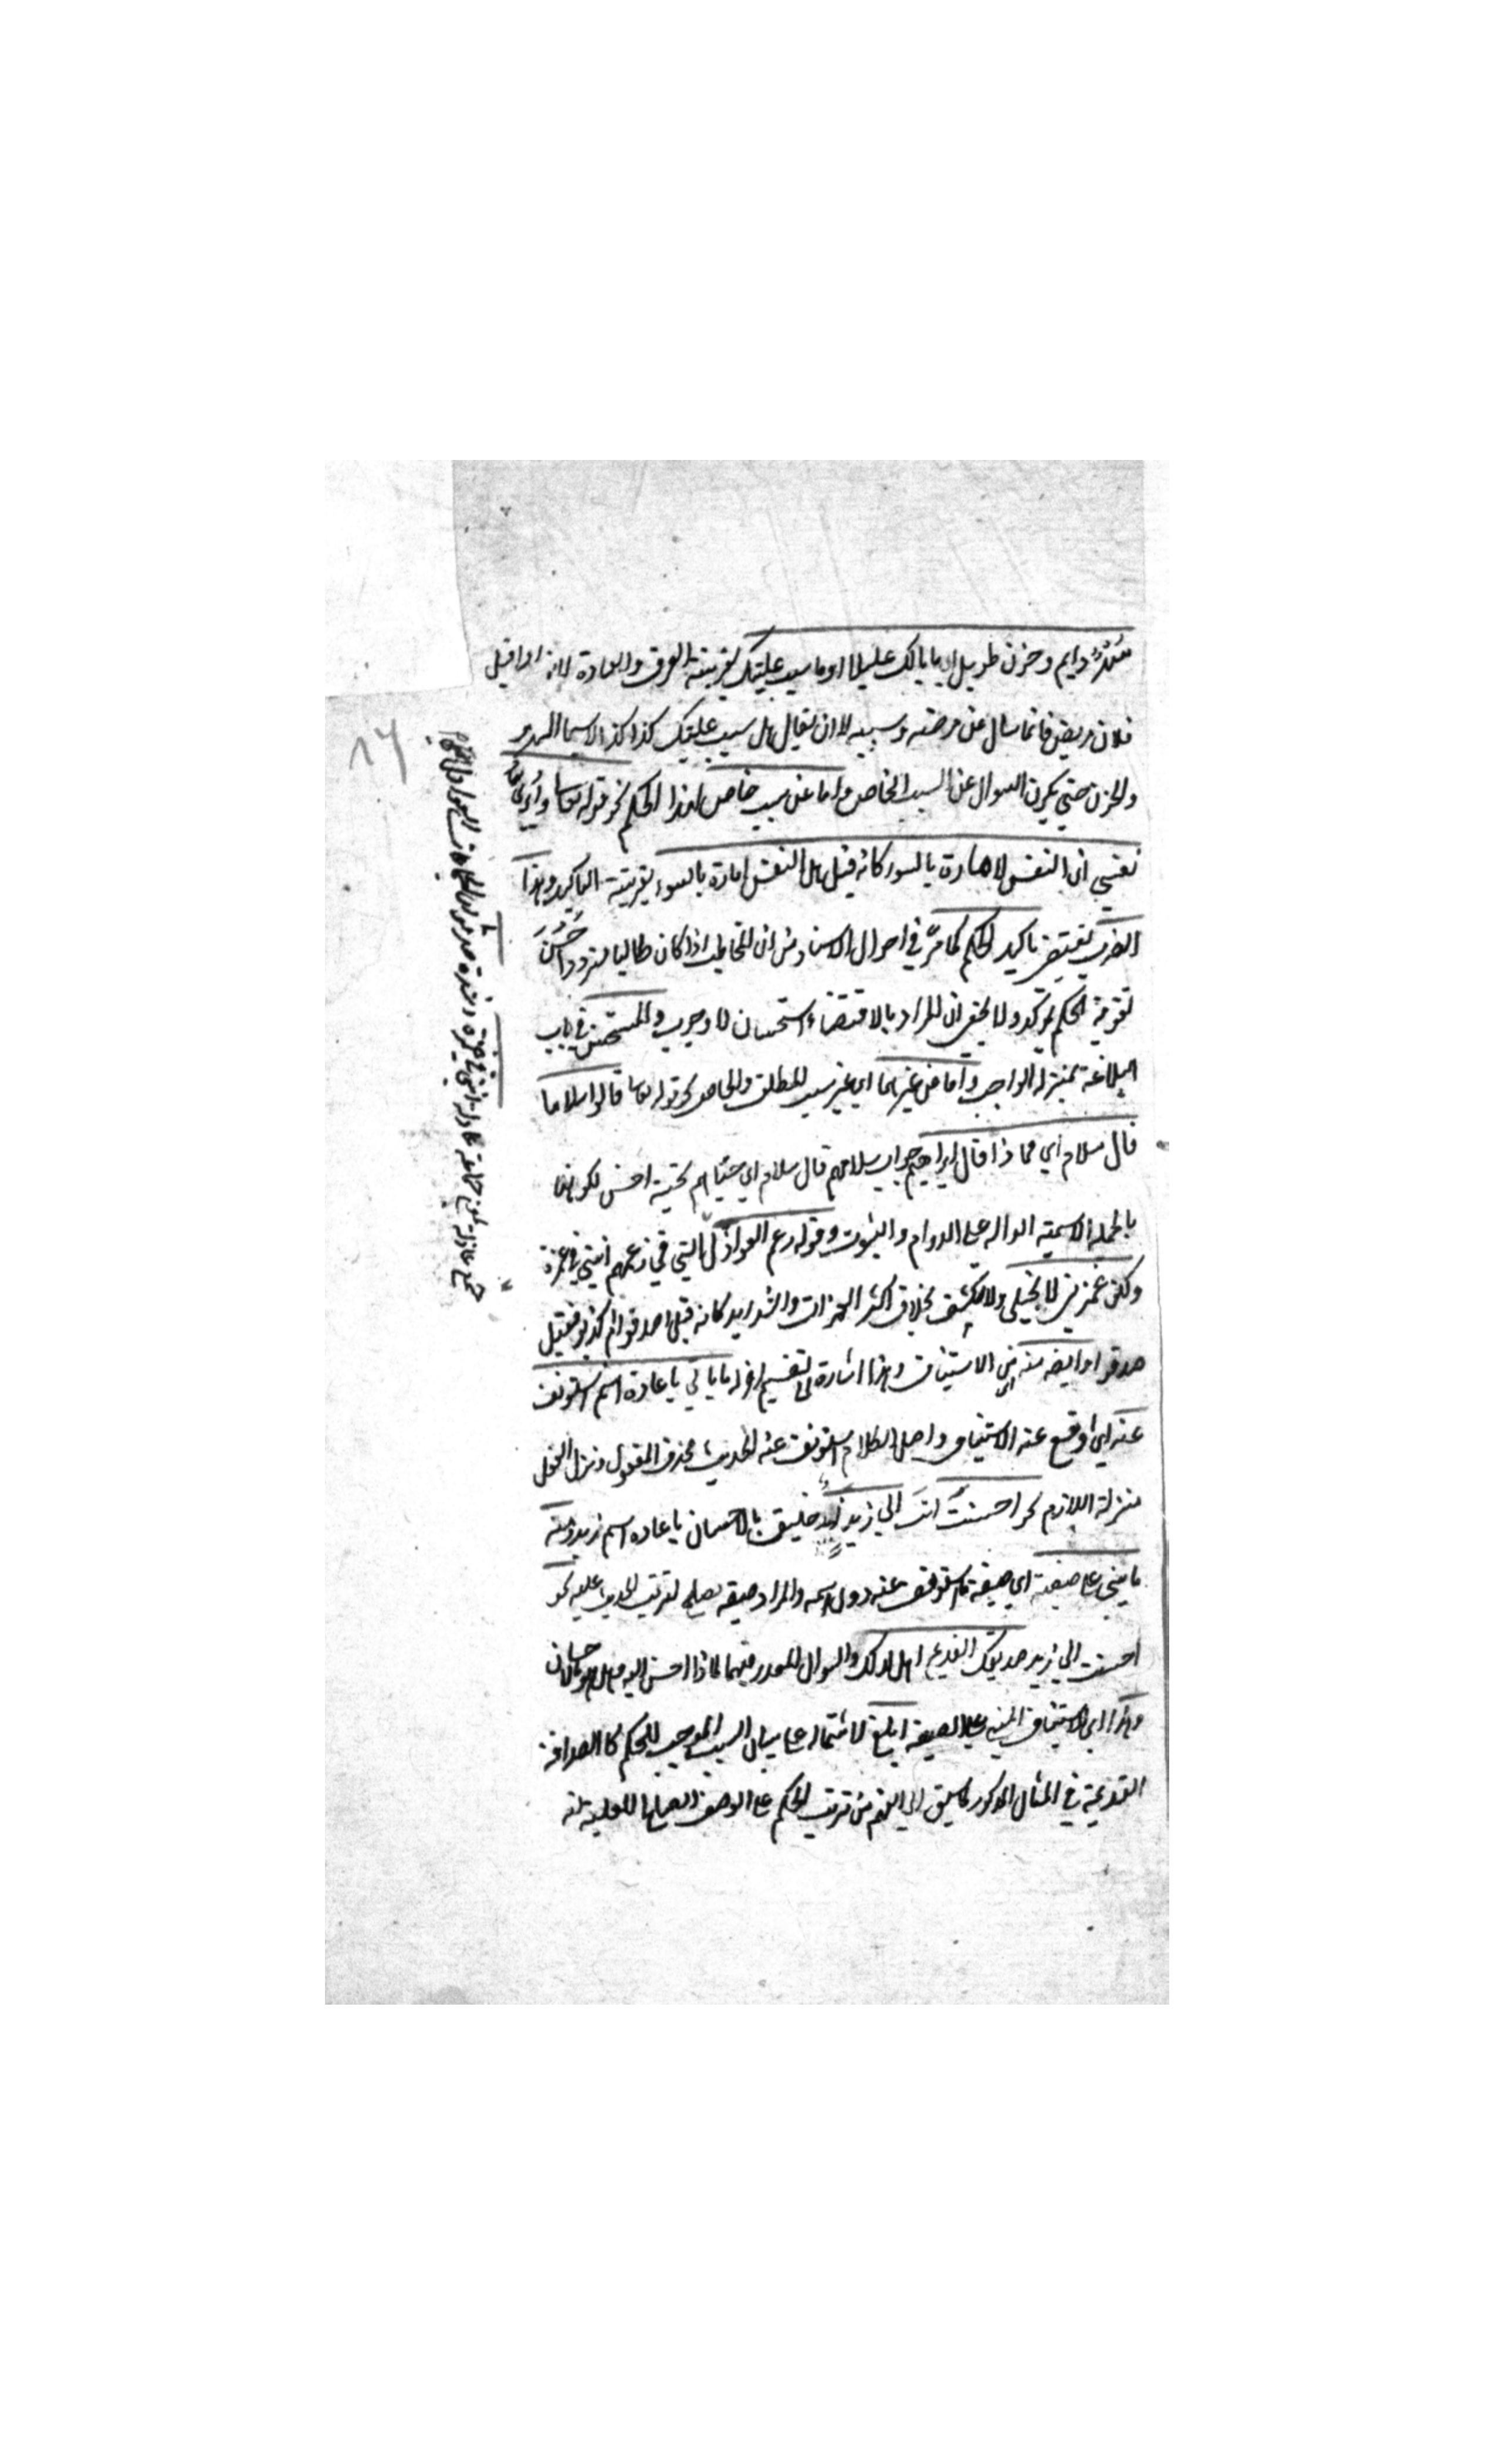 سهر دايم وحزن طويل اي ما بالك عليلا او ما سبب علتك بقرينة العرف والعادة لانه اذا قيل
فلان مريض فانما يسال عن مرضه وسببه لا ان يقال هل سبب علتك كذا كذا لاسيما السهر
والحزن حتي يكون السوال عن السبب الخاص واما عن سبب خاص لهذا الحكم نحو قوله تعا وما ابرئ
نفسي ان النفس لامارة بالسوء كانه قيل هل النفس امارة بالسوء بقرينة التاكيد وهذا
الضرب يقتضي تاكيد الحكم كما مر في احوال الاسناد من ان المخاطب اذا كان طالبا مترددا حسن
تقوية الحكم بموكد ولا يخفي ان المراد بالاقتضاء استحسان لا وجوب والمستحسن في باب
البلاغة بمنزلة الواجب واما عن غيرهما اي غير سبب المطلق والخاص نحو قوله تعا قالوا سلاما
قال سلام اي فماذا قال ابراهيم جواب سلامهم قال سلام اي حياهم بتحية احسن لكونها
بالجملة الاسمية الدالة علي الدوام والثبوت وقوله زعم العواذل انني في غمرة
ولكن غمرتي لا تنجلي ولا تنكشف بخلاف اكثر الغمرات والشدايد كانه قيل اصدقوا ام كذبوا فقيل
صدقوا وايضا منه اي من الاستيناف وهذا اشارة الي تقسيم اخر له ما ياتي باعادة اسم استونف
عنه اي اوقع عنه الاستيناف واصل الكلام استونف عنه الحديث فحذف المفعول ونزل الفعل
منزلة اللازم نحو احسنت انت الي زيد زيد حقيق بالاحسان باعادة اسم زيد ومنه
ما يبني علي صفته اي صفة ما استونف عنه دون اسمه والمراد صفة تصلح لترتب الحديث عليه نحو
احسنت الي زيد صديقك القديم اهل لذلك والسوال المقدر فيهما لماذا احسن اليه وهل هو حقيق بالاحسان
وهذا اي الاستيناف المبني علي الصفة ابلغ لاشتماله علي بيان السبب الموجب للحكم كالصداقة
القديمة في المثال المذكور لما يسبق الي الفهم من ترتب الحكم علي الوصف الصالح للعلية انه
جمع عاذلة بمعني جماعة عاذلة انني في غمرة وشدة صدقوا اي الجماعات العواذل